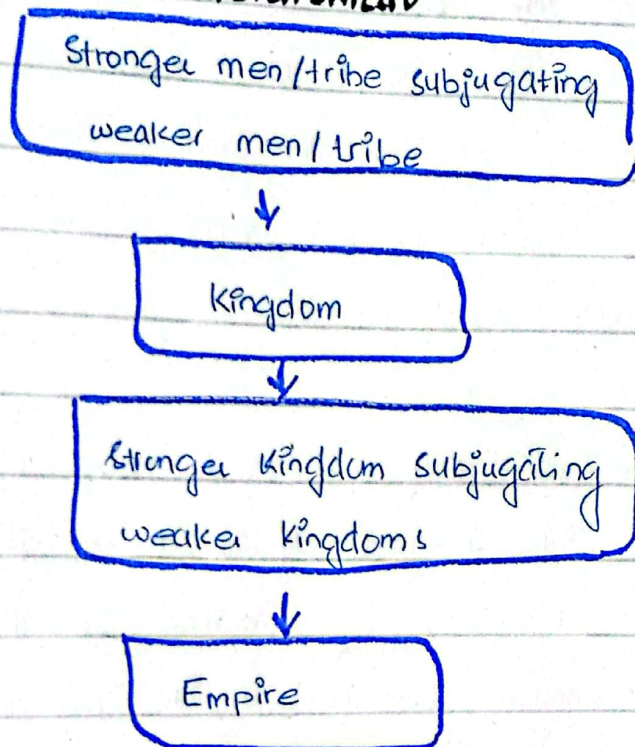 Stronger men/tribe subjugating
weaker men/tribe
Kingdom
Stronger Kingdom subjugating
weaker Kingdoms
Empire